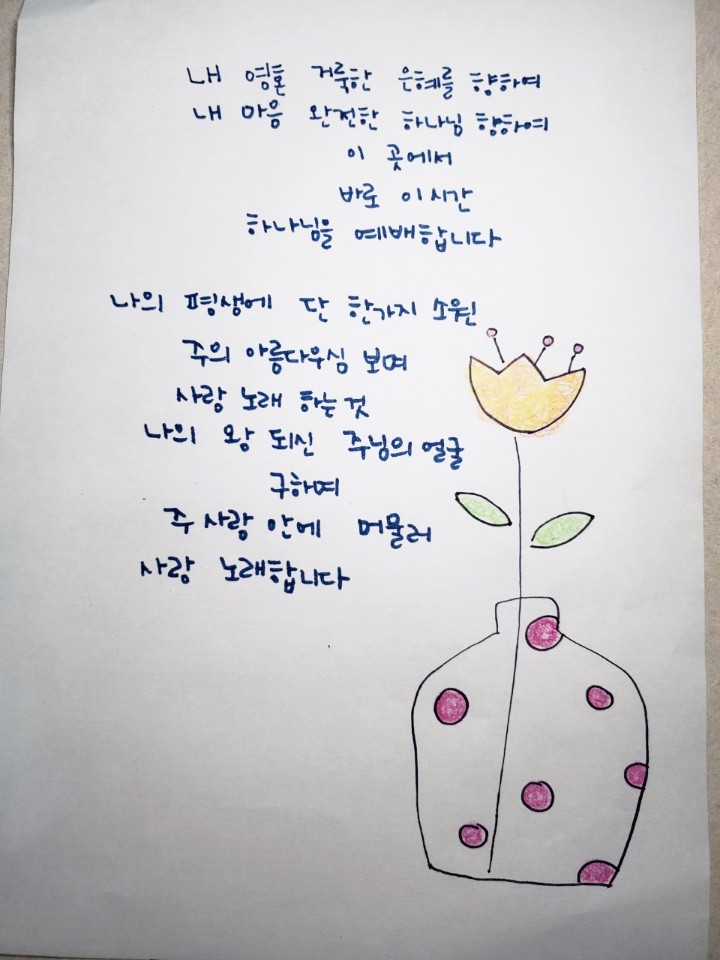 내 영혼 거룩한 은혜를 향하여
내 마음 완전한 하나님 향하여
이 곳에서
바로 이시간
하나님을 예배합니다
나의 평생에 단 한가지 소원
주의 아름다우심 보며
사랑 노래 하는것
나의 왕 되신 주님의 얼굴
구하며
주 사랑 안에 머물러
사랑 노래합니다